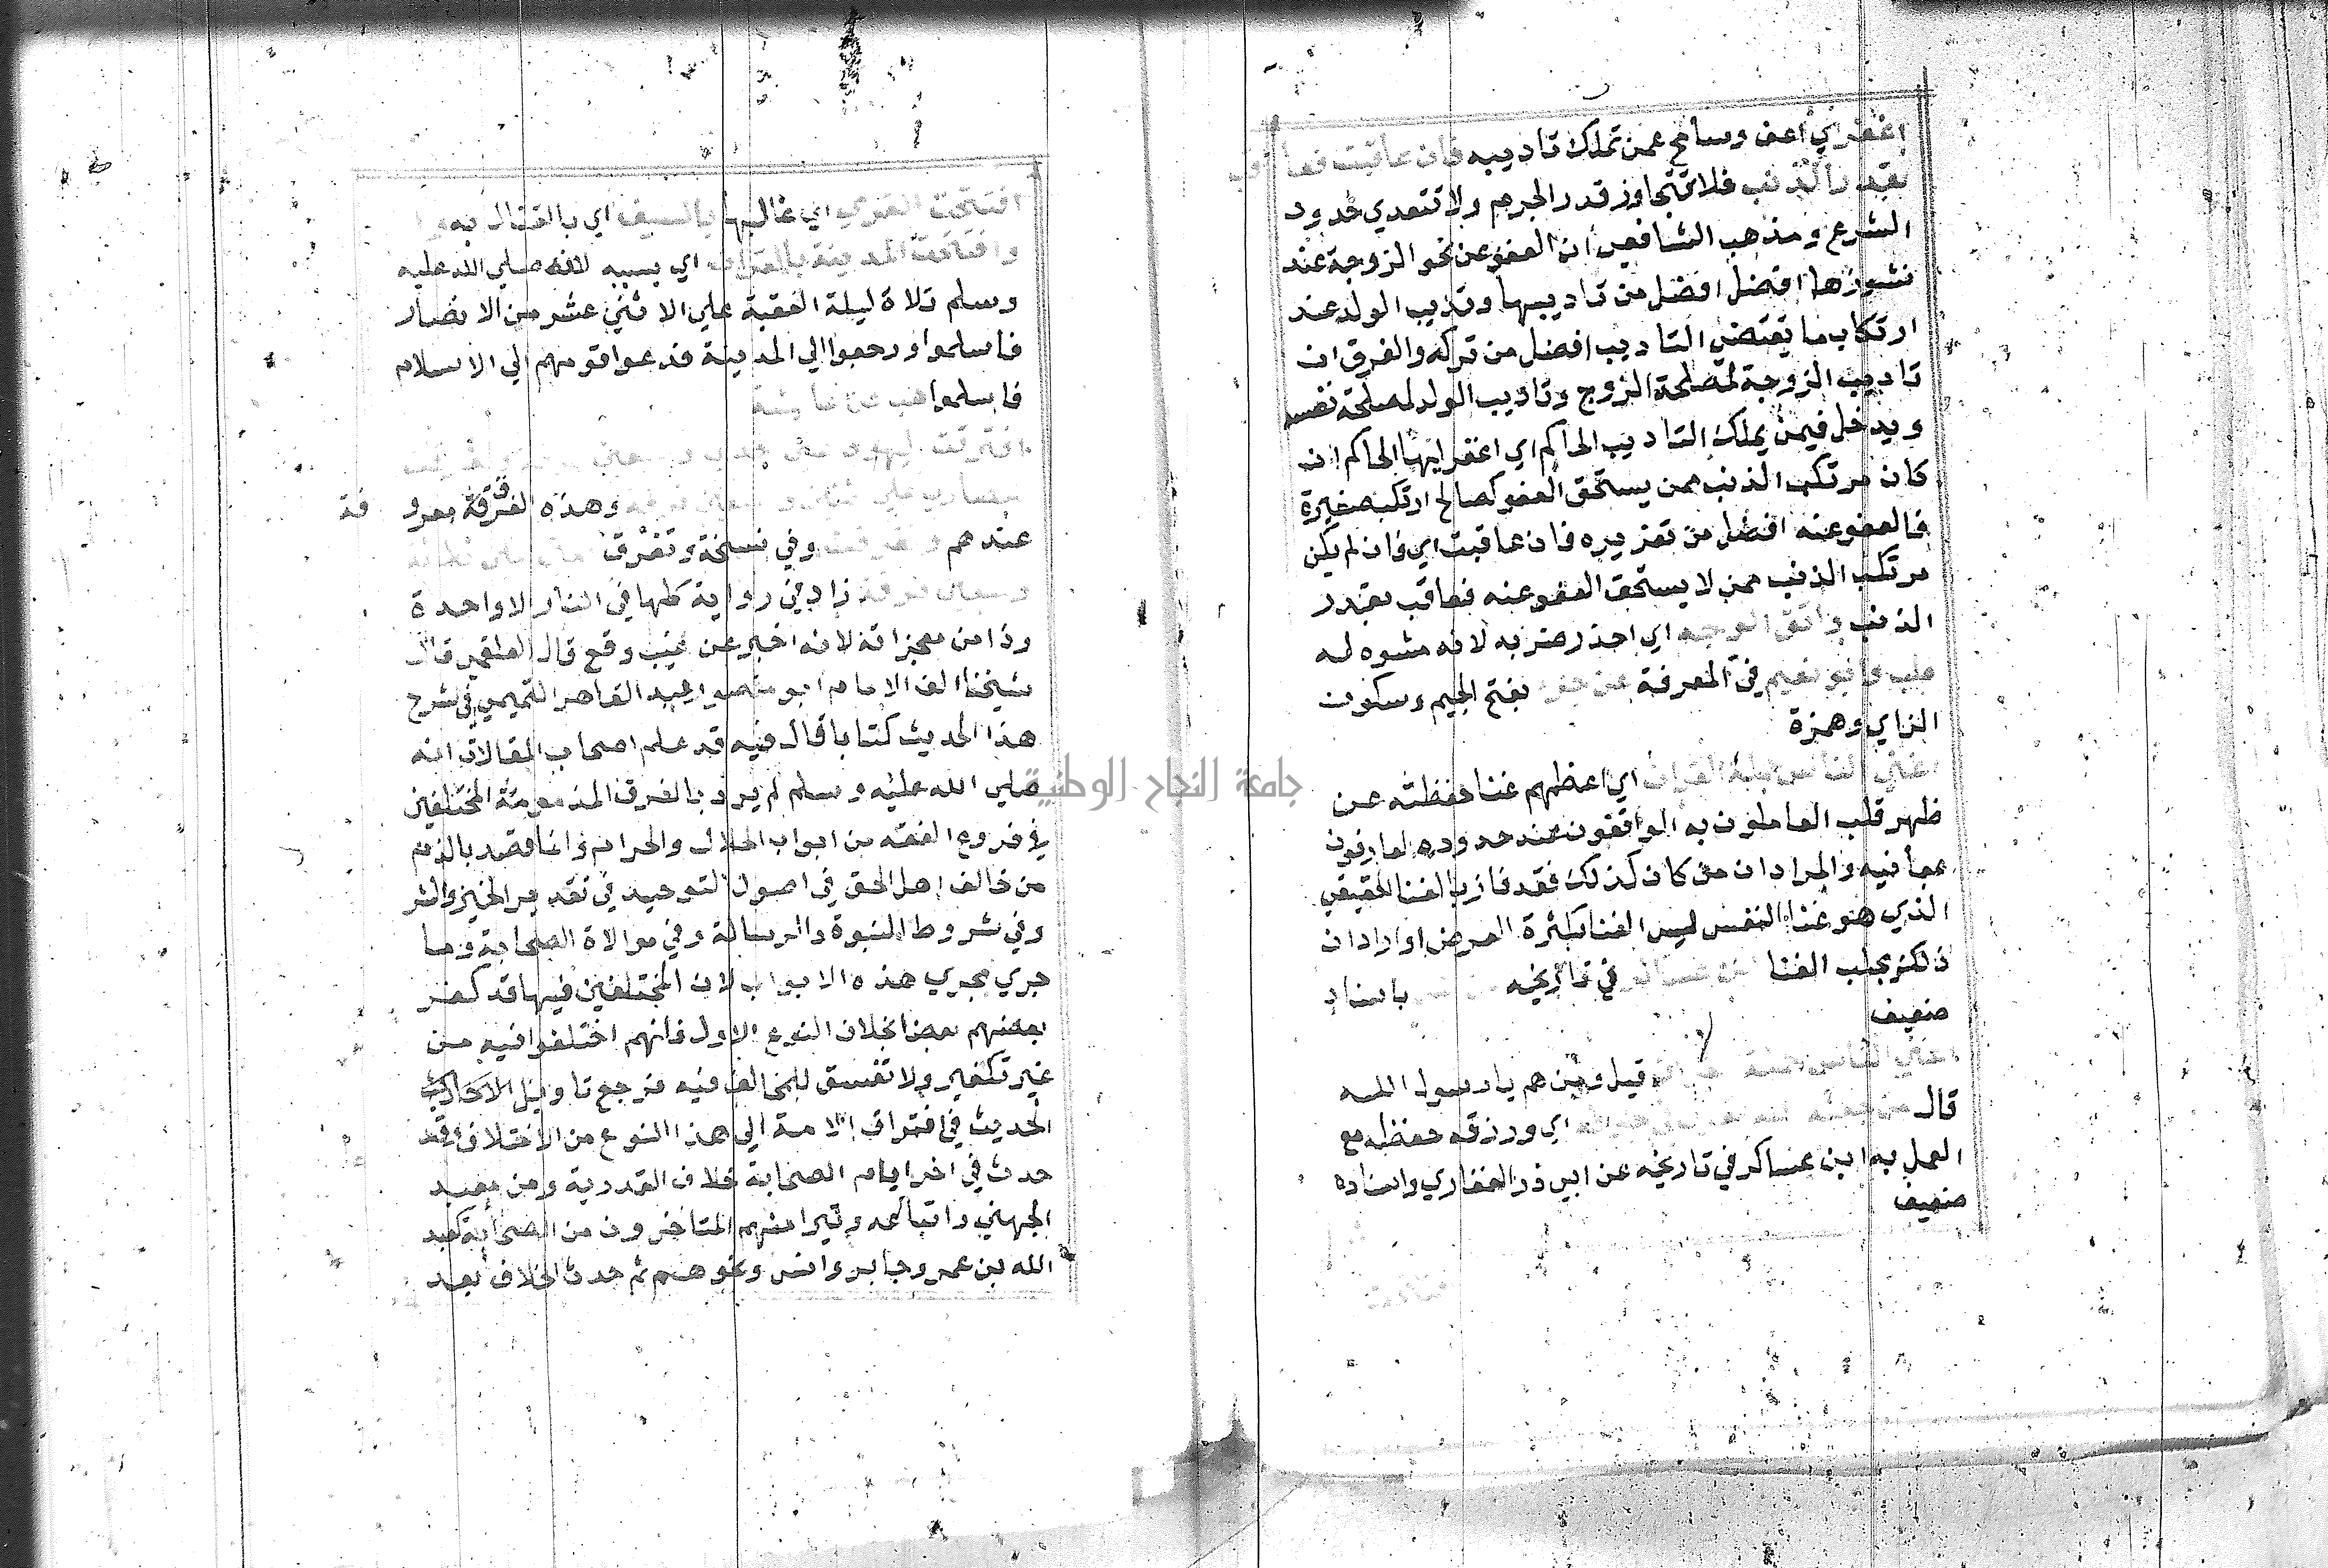 اغفر اي اعف وسامح عمن تملك تاديبه فان عاقبت فعاقب
بقدر الذنب فلا تتجاوز قدر الجرم ولا تتعدي حدود
الشرع ومذهب الشافعي ان العفو عن نحو الزوجة عند
نشوزها افضل افضل من تاديبها وتديب الولد عند
ارتكاب ما يقتضي التاديب افضل من تركه والفرق ان
تاديب الزوجة لمصلحة الزوج وتاديب الولد لمصلحة نفسه
ويدخل فيمن يملك التاديب الحاكم اي اغفر ايها الحاكم ان
كان مرتكب الذنب ممن يستحق العفو كصالح ارتكب صغيرة
فالعفو عنه افضل من تعزيره فان عاقبت اي فان لم يكن
مرتكب الذنب ممن لا يستحق العفو عنه فعاقب بقدر
الذنب واتق الوجه اي احذر ضربه لانه مشوه له
طب وابو نعيم في المعرفة عن جزء بفتح الجيم وسكون
الزاي وهمزة
اغني الناس حملة القران اي اعظمهم غنا حفظته عن
ظهر قلب العاملون به الواقفون عند حدوده العارفون
بما فيه والمراد ان من كان كذلك فقد فاز بالغنا الحقيقي
الذي هو غنا النفس ليس الغنا بكثرة العرض او اراد ان
ذلك يجلب الغنا ابن عساكر في تاريخه باسناد
ضعيف
اغني الناس حملة القران قيل ومن هم يا رسول الله
قال من جعله الله اي ورزقه حفظه مع
العمل به ابن عساكر في تاريخه عن ابي ذر الغفاري واسناده
ضعيف
افتتحت القري اي غالبها بالسيف اي بالقتال به
وافتتحت المدينة بالقران اي بسببه لانه صلي الله عليه
وسلم تلاه ليلة العقبة علي الاثني عشر من الانصار
فاسلموا ورجعوا الي المدينة فدعوا قومهم الي الاسلام
فاسلموا هب عن عايشة
افترقت اليهود علي احدي وسبعين فرقة
وهذه الفرقة معروفة
عندهم وفي نسخة وتفرق
وسبعين فرقة زاد في رواية كلها في النار الا واحدة
وذا من معجزاته لانه اخبر عن غيب وقع قال العلقمي قال
شيخنا الف الامام ابو منصور عبد القاهر التميمي في شرح
هذا الحديث كتابا قال فيه قد علم اصحاب المقالات انه
صلي الله عليه وسلم لم يرد بالفرق المذمومة المختلفين
في فروع الفقه من ابواب الحلال والحرام وانما قصد بالذم
من خالف اهل الحق في اصول التوحيد في تقدير الخير والشر
وفي شروط النبوة والرسالة وفي موالاة الصحابة وما
جري مجري هذه الابواب لان المختلفين فيها قد كفر
بعضهم بعضا بخلاف النوع الاول فانهم اختلفوا فيه من
غير تكفير ولا تفسيق للمخالف فيه فرجع تاويل
الحديث في افتراق الامة الي هذا النوع من الاختلاف وقد
حدث في اخر ايام الصحابة خلاف القدرية ومن معبد
الجهني واتباعه وتبرا منهم المتاخرون من الصحابة كعبد
الله بن عمر وجابر وانس ونحوهم ثم حدث الخلاف بعد
جامعة النجاح الوطنية